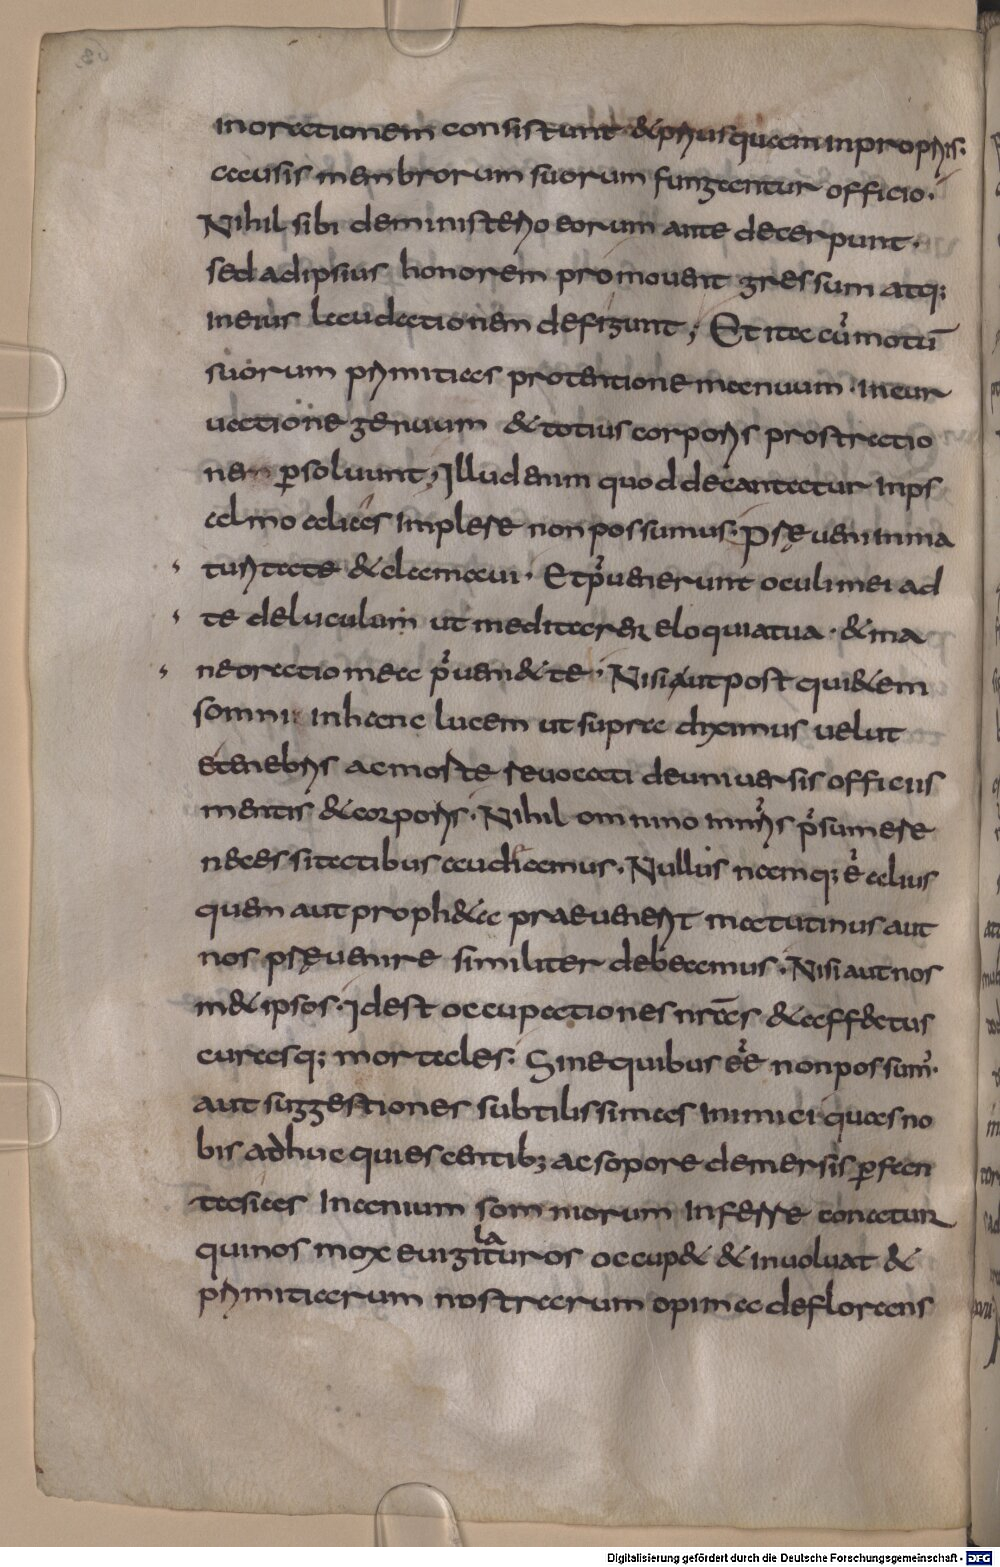 inorationem consistunt & priusquam inpropriis.
causis membrorum suorum fungantur officio.
Nihil sibi deministerio eorum ante decerpunt.
sed adipsius honorem promouent gressum atq;
ineius laudationem defigunt; Et ita cū motū
suorum primitias protentione manuum. incur
uatione genuum & totius corporis prostratio
nem psoluunt, Illud enim quod decantatur inps
almo alias implere non possumus. Pręueni inma
turitate & clamaui. Et pueenerunt oculi mei ad
te deluculum ut meditarer eloquia tua. & ma
ne oratio mea pueniet te. Nisi aut post quietem
somni inhanc lucem ut supra diximus uelut
etenebris ac morte reuocati deuniuersis officiis
mentis & corporis. Nihil omnino innris psumere
necessitatibus audeamus. Nullus namq; ē alius
quem aut propheta praeuenerit matutinus aut
nos pręuenire similiter debeamus. Nisi aut nos
m&ipsos. Idest occupationes nrās & affectus
curasq; mortales. Sine quibus eē non possum.
aut suggestiones subtilissimas inimici quas no
bis adhuc quiescentib; ac sopore demersis pfan
tasias inanium somniorum inferre conatur
qui nos mox euigilaturos occup& & inuoluat &
primitiarum nostrarum opima deflorans
Digitalisierung gefördert durch die Deutsche Forschungsgemeinschaft - DFG